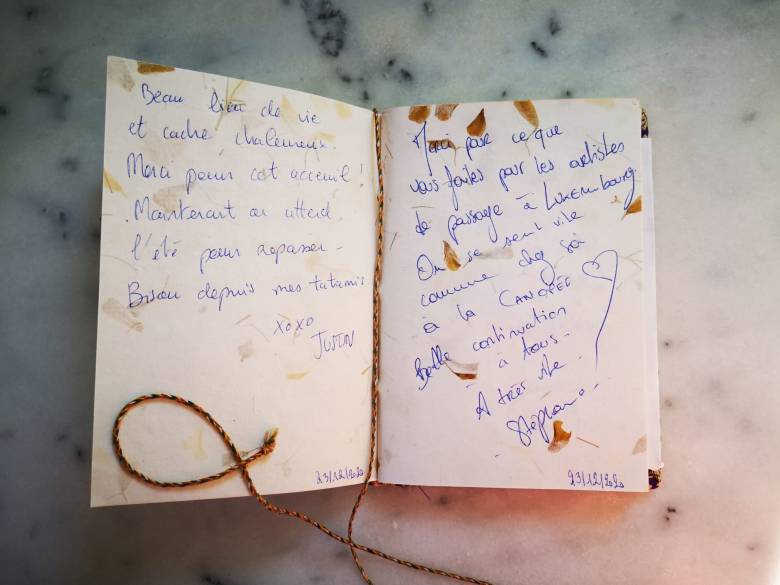 Beau lieu de vie
et cadre chaleureux.
Merci pour cet acceuil !
Maintenant on attend
l'été pour repasser -
Bisou depuis mes tatamis
xoxo
JUSTIN
23/12/2020
Merci pour ce que
vous faites pour les artistes
de passage à LUXEMBOURG.
On se sent vite
comme chez soi
à la CANOPÉE
Belle continuation
à tous -
A très vite -
23/12/2020